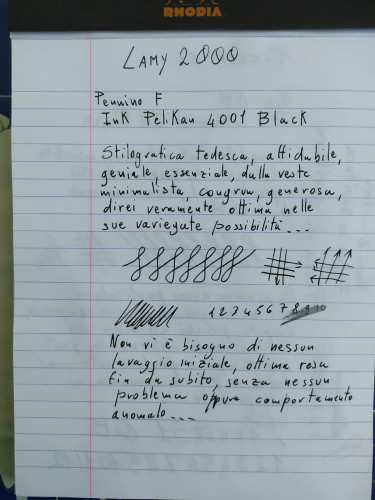 RHODIA
LAMY 2000
Pennino F
Ink Pelikan 4001 Black
Stilografica tedesca, affidabile,
geniale, essenziale, dalla veste
minimalista, congrua, generosa,
direi veramente ottima nelle
sue variegate possibilità...
1 2 3 4 5 6 7 8 9 10
Non vi è bisogno di nessun
lavaggio iniziale, ottima resa
fin da subito, senza nessun
problema oppure comportamento
anomalo...